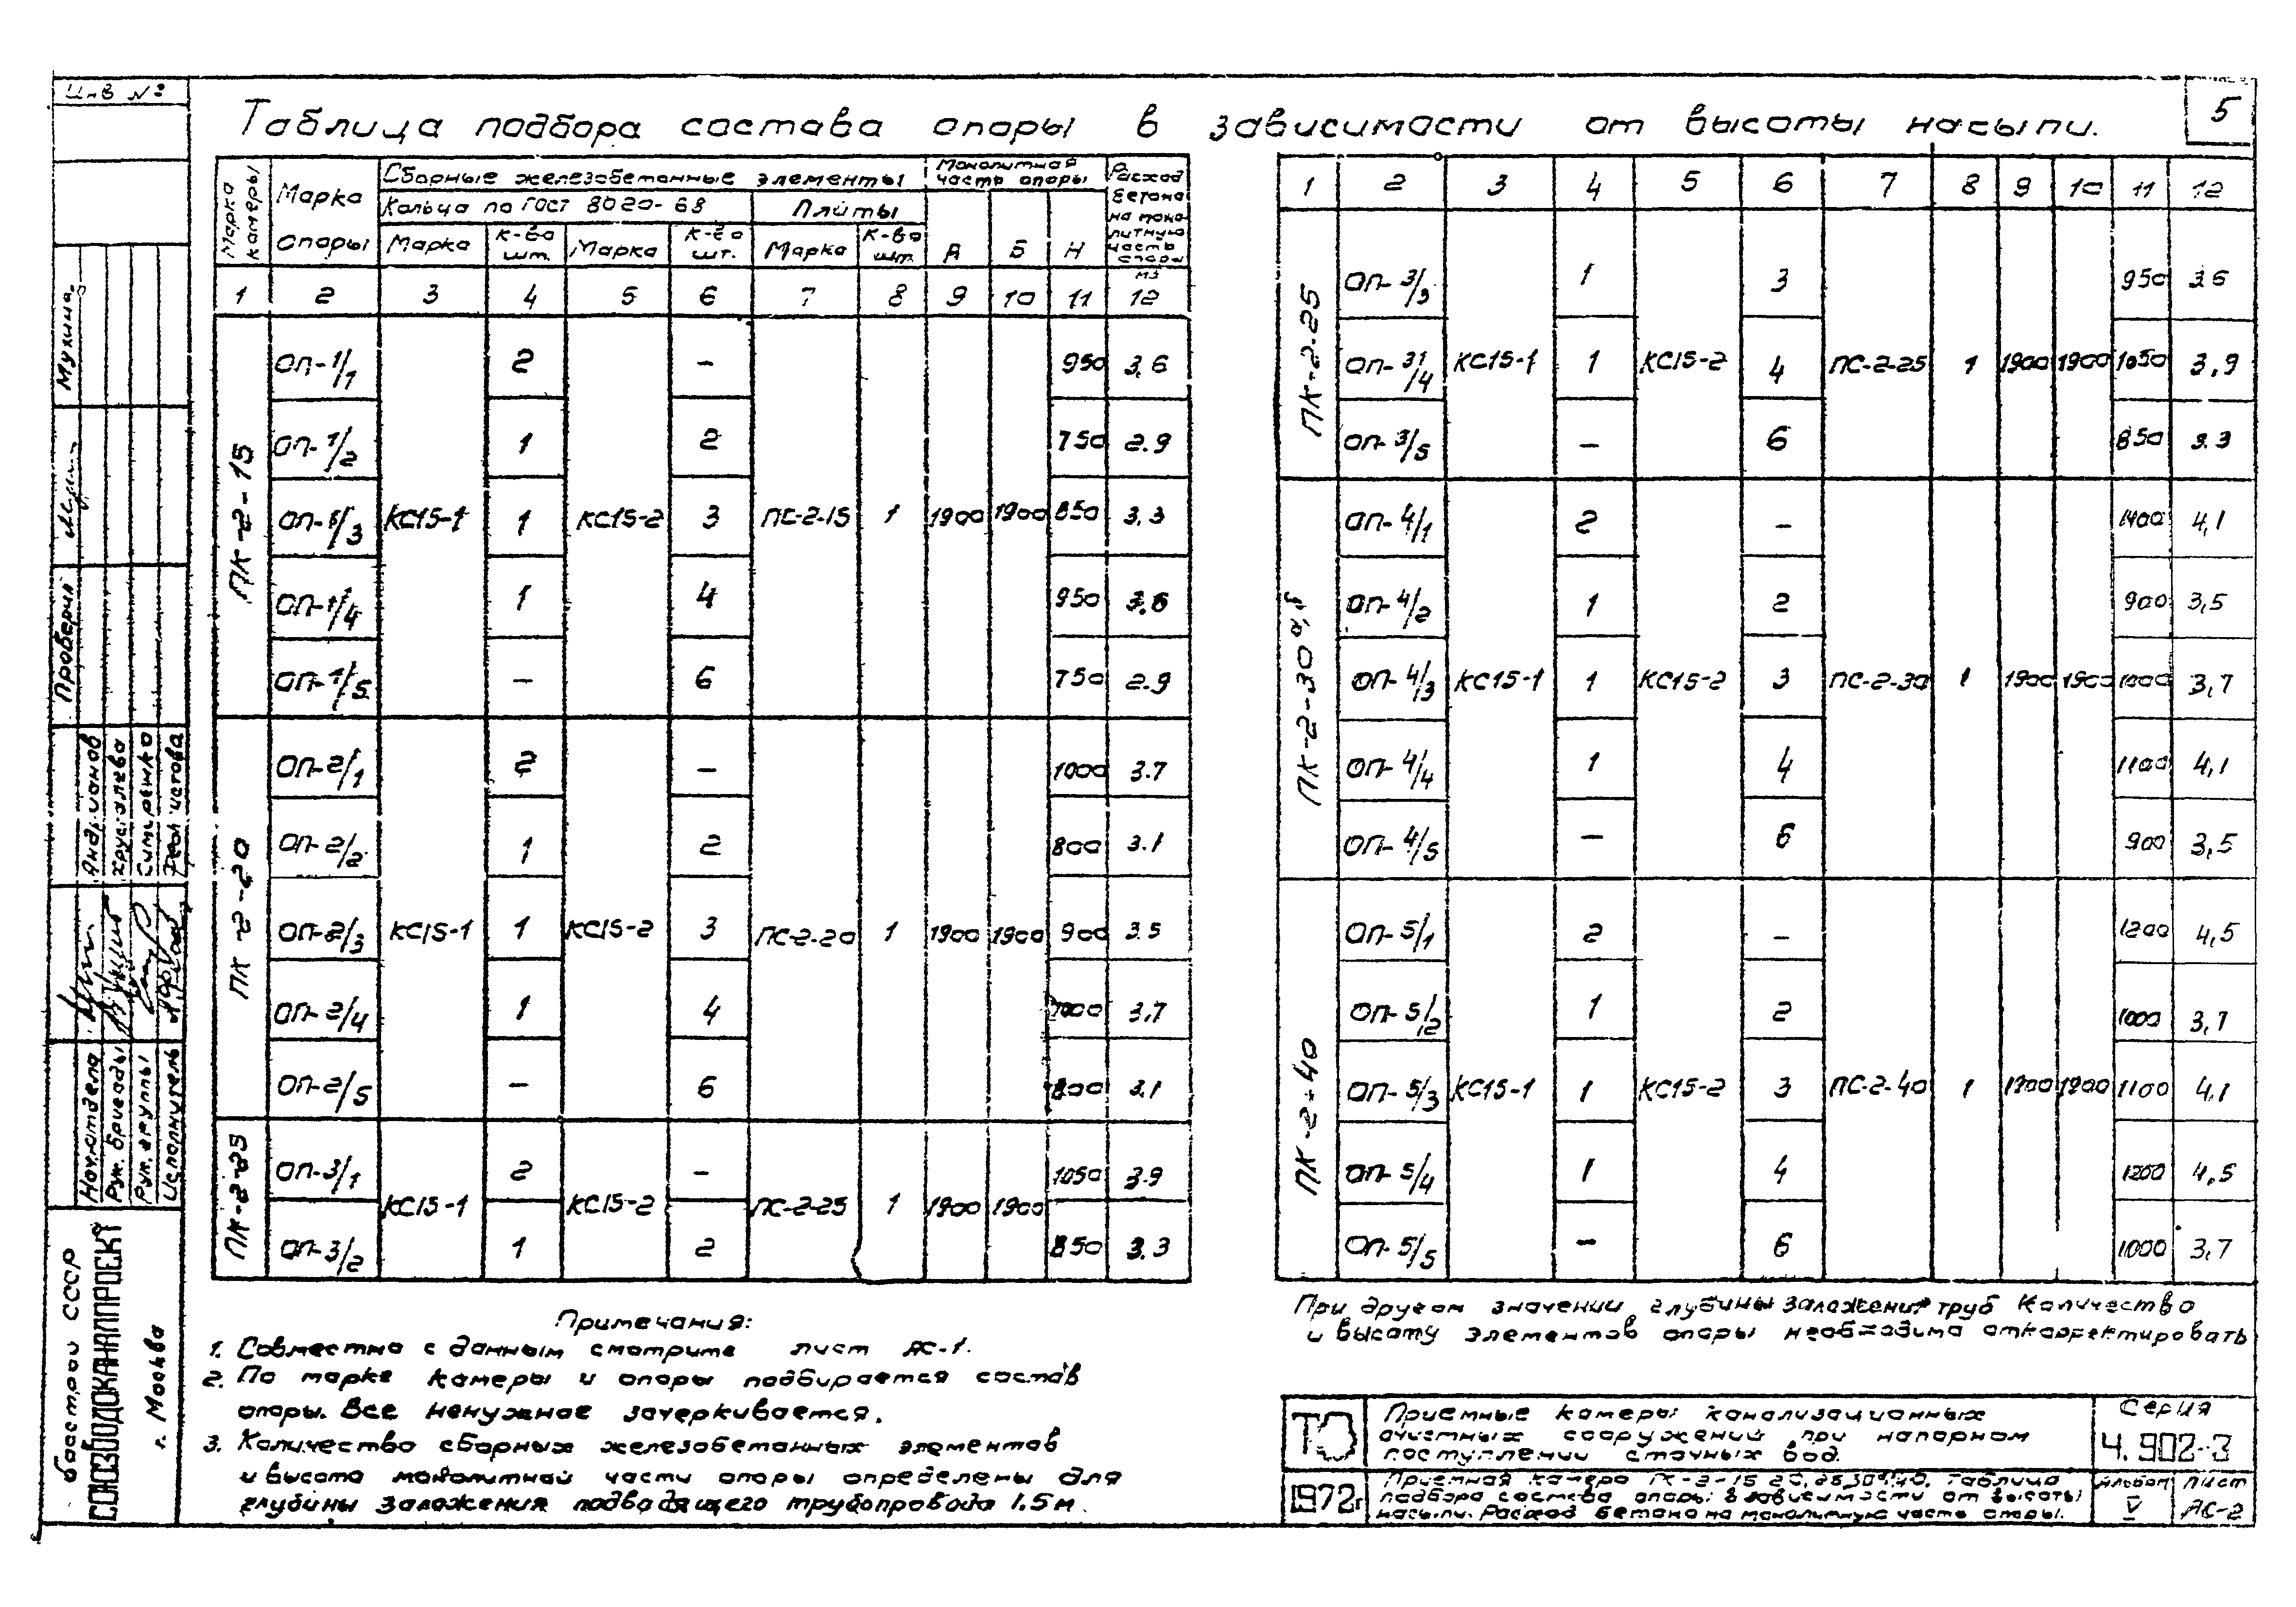 Инв №
5
Таблица подбора состава опоры в зависимости от высоты насыпи.
Марка камеры
Марка опоры
Сборные железобетонные элементы
Монолитная часть опоры
Расход бетона на монолитную часть опоры м3
Кольца по ГОСТ 8020-68
Плиты
Марка
К-во шт.
Марка
К-во шт.
Марка
К-во шт.
А
Б
Н
1 2 3 4 5 6 7 8 9 10 11 12
ПК-2-15
ОП-1/1 2 – 950 3,6
ОП-1/2 1 2 750 2.9
ОП-1/3 КС15-1 1 КС15-2 3 ПС-2-15 1 1900 1900 850 3.3
ОП-1/4 1 4 950 3.6
ОП-1/5 – 6 750 2.9
ПК-2-20
ОП-2/1 2 – 1000 3.7
ОП-2/2 1 2 800 3.1
ОП-2/3 КС15-1 1 КС15-2 3 ПС-2-20 1 1900 1900 900 3.5
ОП-2/4 1 4 1000 3.7
ОП-2/5 – 6 800 3.1
ПК-2-25
ОП-3/1 2 – 1050 3.9
КС15-1 КС15-2 ПС-2-25 1 1900 1900
ОП-3/2 1 2 850 3.3
1 2 3 4 5 6 7 8 9 10 11 12
ПК-2-25
ОП-3/3 1 3 950 3.6
ОП-3/4 КС15-1 1 КС15-2 4 ПС-2-25 1 1900 1900 1050 3,9
ОП-3/5 – 6 850 3.3
ПК-2-30а,б
ОП-4/1 2 – 1400 4,1
ОП-4/2 1 2 900 3,5
ОП-4/3 КС15-1 1 КС15-2 3 ПС-2-30 1 1900 1900 1000 3,7
ОП-4/4 1 4 1100 4,1
ОП-4/5 – 6 900 3,5
ПК-2-40
ОП-5/1 2 – 1200 4,5
ОП-5/2 1 2 1000 3,7
ОП-5/3 КС15-1 1 КС15-2 3 ПС-2-40 1 1900 1900 1100 4,1
ОП-5/4 1 4 1200 4,5
ОП-5/5 – 6 1000 3,7
Примечания:
1. Совместно с данным смотрите лист АС-1.
2. По марке камеры и опоры подбирается состав
опоры. Все ненужное зачеркивается.
3. Количество сборных железобетонных элементов
и высота монолитной части опоры определены для
глубины заложения подводящего трубопровода 1.5м.
При другом значении глубины заложения труб количество
и высоту элементов опоры необходимо откорректировать
ТД
1972г
Приемные камеры канализационных
очистных сооружений при напорном
поступлении сточных вод.
Приемная камера ПК-2-15, 20, 25, 30а, 40. Таблица
подбора состава опоры в зависимости от высоты
насыпи. Расход бетона на монолитную часть опоры.
Серия
4.902-3
Альбом
V
Лист
АС-2
Мухина
Проверил
Хрусталева
Нач. отдела
Рук. бригады
Рук. группы
Исполнитель
СОЮЗВОДОКАНАЛПРОЕКТ
г. Москва